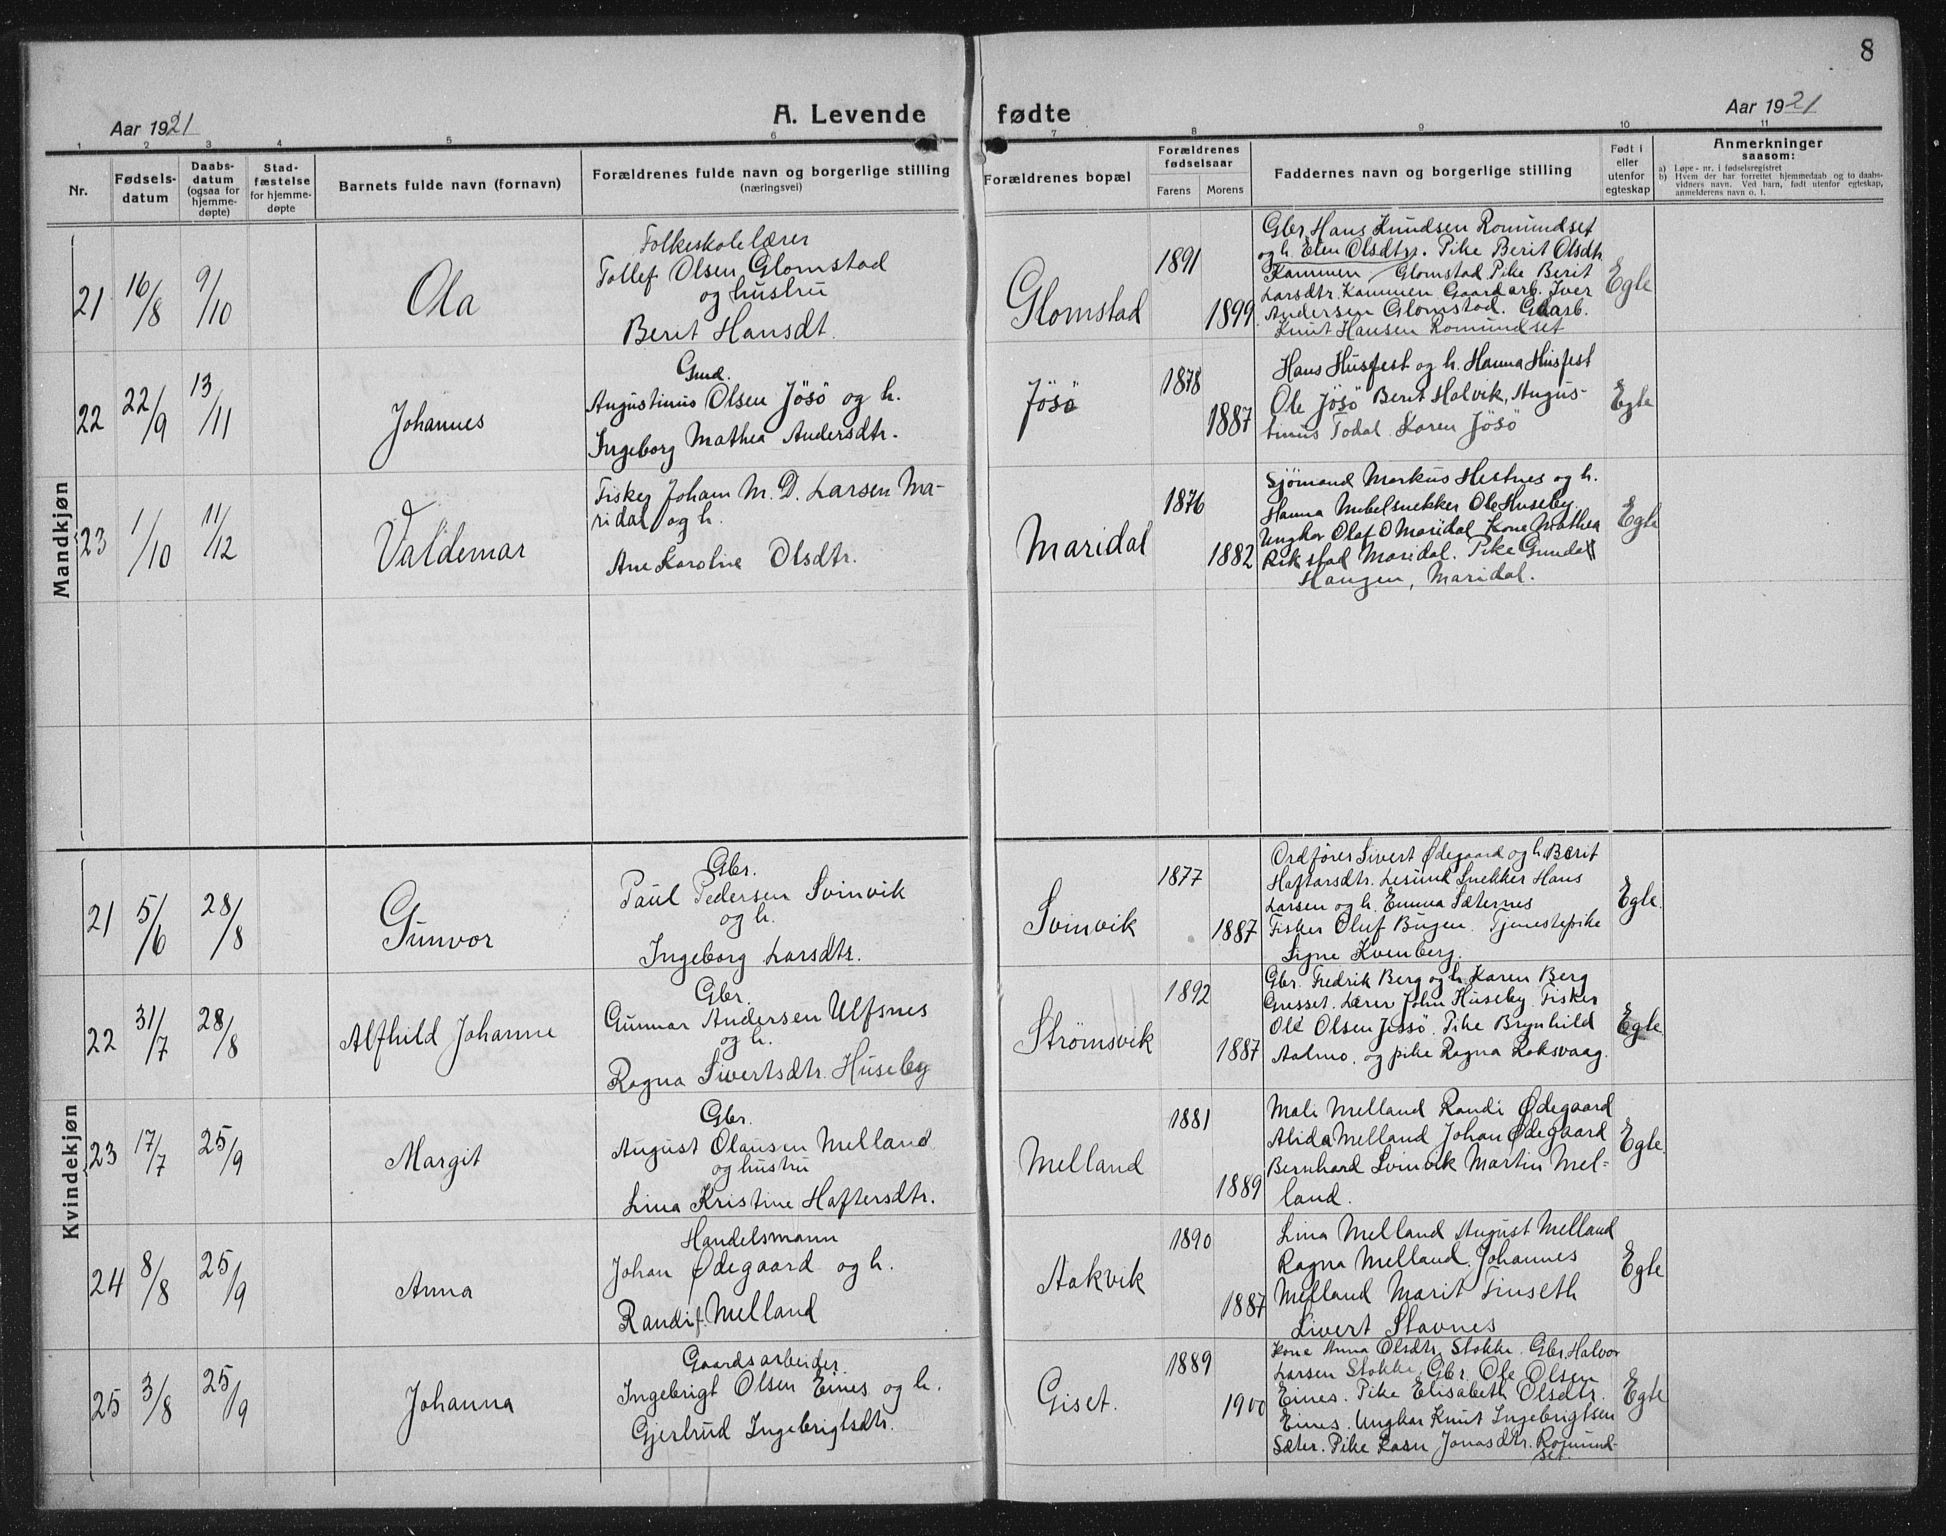 8
Aar 1921
A. Levende fødte
Aar 1921
1 2 3 4 5 6 7 8 9 10 11
Nr.
Fødsels-
datum
Daabs-
datum
(ogsaa for
hjemme-
døpte)
Stad-
fæstelse
for hjemme-
døpte
Barnets fulde navn (fornavn)
Forældrenes fulde navn og borgerlige stilling
(næringsvei)
Forældrenes bopæl
Forældrenes
fødselsaar
Farens Morens
Faddernes navn og borgerlige stilling
Født i
eller
utenfor
egteskap
Anmerkninger
saasom:
a) Løpe-nr. i fødselsregistret
b) Hvem der har forrettet hjemmedaab og to daabs-
vidners navn. Ved barn, født utenfor egteskap,
anmelderens navn o. l.
Mandkjøn
21 16/8 9/10 Ola
Folkeskolelærer
Tollef Olsen Glomstad
og hustru
Berit Hansdt.
Glomstad 1891 1899
Gbr. Hans Knudsen Romundset
og h. Elen Olsdtr. Pike Berit Olsdtr
Kammen Glomstad Pike Berit
Larsdtr. Kammen Gaardarb. Iver
Andersen Glomstad. Gaarb.
Knut Hansen Romundset
Egte
22 22/9 13/11 Johannes
Gmd.
Augustinus Olsen Jösö og h.
Ingeborg Mathea Andersdtr.
Jösö 1878 1887
Hans Husfest og h. Hanna Husfest
Ole Jösö Berit Halvik, Augus-
tinus Todal Karen Jösö
Egte
23 1/10 11/12 Valdemar
Fisker Johan M. D. Larsen Ma-
ridal og h.
Ane Karoline Olsdtr.
Maridal 1876 1882
Sjømand Markus Hestnes og h.
Hanna Møbelsnekker Ole Huseby
Ungkar Olaf O Maridal Kone Mathea
Rikstad Maridal. Pike Gunda
Haugen, Maridal.
Egte
Kvindekjøn
21 5/6 28/8 Gunvor
Gbr.
Paul Pedersen Svinvik
og h.
Ingeborg Larsdtr.
Svinvik 1877 1887
Ordfører Sivert Ødegaard og h. Berit
Haftorsdtr. Snekker Hans
Larsen og h. Emma Sæternes
Fisker Oluf Bugen. Tjenestepike
Signe Kvenberg.
Egte.
22 31/7 28/8 Alfhild Johanne
Gbr.
Gunnar Andersen Ulfsnes
og h.
Ragna Sivertsdtr. Huseby
Strømsvik 1892 1887
Gbr. Fredrik Berg og h. Karen Berg
Gresset. Lærer John Huseby. Fisker
Ole Olsen Jessø. Pike Brynhild
Aalmo, og pike Ragna Roksvaag.
Egte
23 17/7 25/9 Margit
Gbr.
August Olausen Melland
og hustru
Lina Kristine Haftersdtr.
Melland 1881 1889
Mali Melland Randi Ødegaard
Alida Melland Johan Ødegaard
Bernhard Svinvik Martin Mel-
land.
Egte.
24 8/8 25/9 Anna
Handelsmann
Johan Ødegaard og h.
Randi f. Melland
Aakvik 1890 1887
Lina Melland August Melland
Ragna Melland. Johannes
Melland Marit Tinseth
Sivert Stavnes
Egte
25 3/8 25/9 Johanna
Gaardsarbeider
Ingebrigt Olsen Eines og h.
Gjertrud Ingebrigtsdtr.
Giset. 1889 1900
Kone Anna Olsdtr. Stokke. Gbr. Halvor
Larsen Stokke, Gbr. Ole Olsen
Eines. Pike Elisabeth Olsdtr.
Eines. Ungkar Knut Ingebrigtsen
Sæter. Pike Karn Jonasdtr. Romund-
set.
Egte